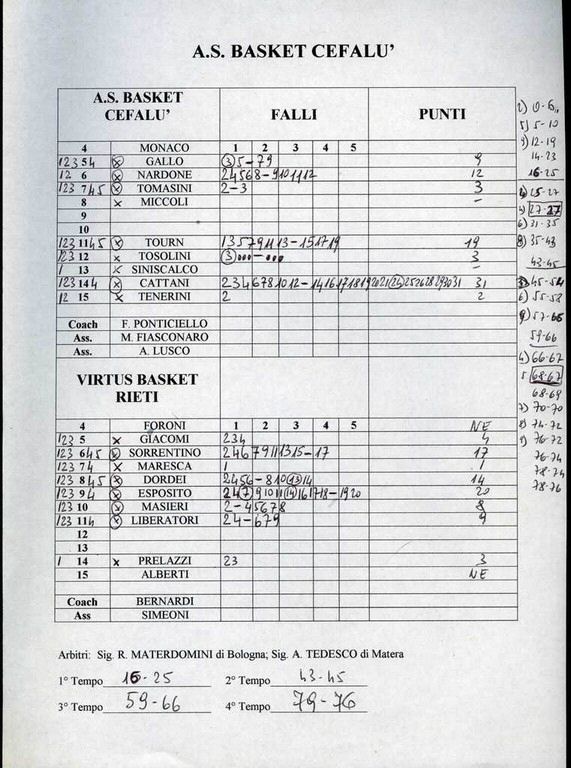 A.S. BASKET CEFALU'
A.S. BASKET CEFALU' FALLI PUNTI
4 MONACO 1 2 3 4 5
5 GALLO 9
6 NARDONE 24568-9101112 12
7 TOMASINI 2-3 3
8 MICCOLI -
9
10
11 TOURN 1357911 13-151719 19
12 TOSOLINI 3
13 SINISCALCO -
14 CATTANI 31
15 TENERINI 2 2
Coach F. PONTICIELLO
Ass. M. FIASCONARO
Ass. A. LUSCO
VIRTUS BASKET RIETI
4 FORONI 1 2 3 4 5 NE
5 GIACOMI 234 4
6 SORRENTINO 24679111315-17 17
7 MARESCA 1 1
8 DORDEI 2456-8101314 14
9 ESPOSITO 20
10 MASIERI 2-45678 8
11 LIBERATORI 24-679 9
12
13
14 PRELAZZI 23 3
15 ALBERTI NE
Coach BERNARDI
Ass SIMEONI
0-6
5-10
12-19
14-23
16-25
25-27
27-27
31-35
35-43
43-45
45-54
55-58
57-66
59-66
66-67
68-67
68-69
70-70
74-72
76-72
76-74
78-74
78-76
Arbitri: Sig. R. MATERDOMINI di Bologna; Sig. A. TEDESCO di Matera
1° Tempo 16-25 2° Tempo 43-45
3° Tempo 59-66 4° Tempo 79-76